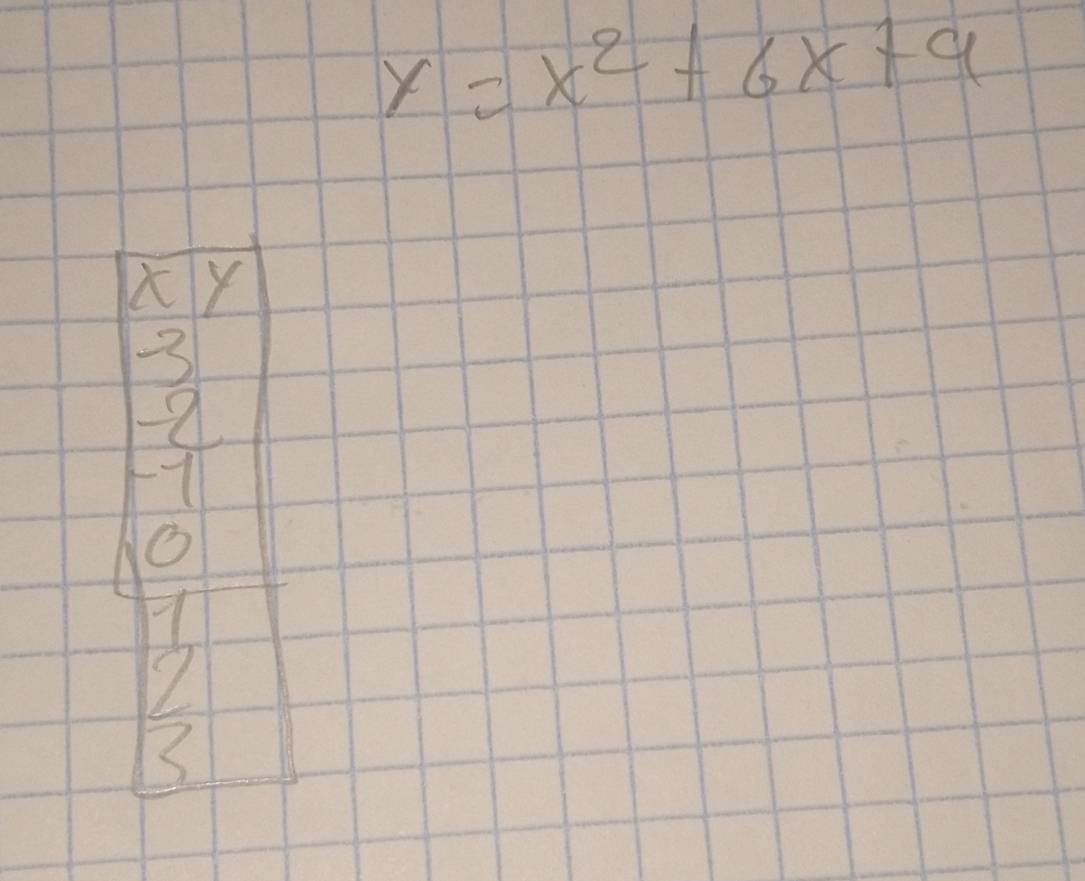 y = x² + 6x + 9
x y
-3
-2
-1
0
1
2
3